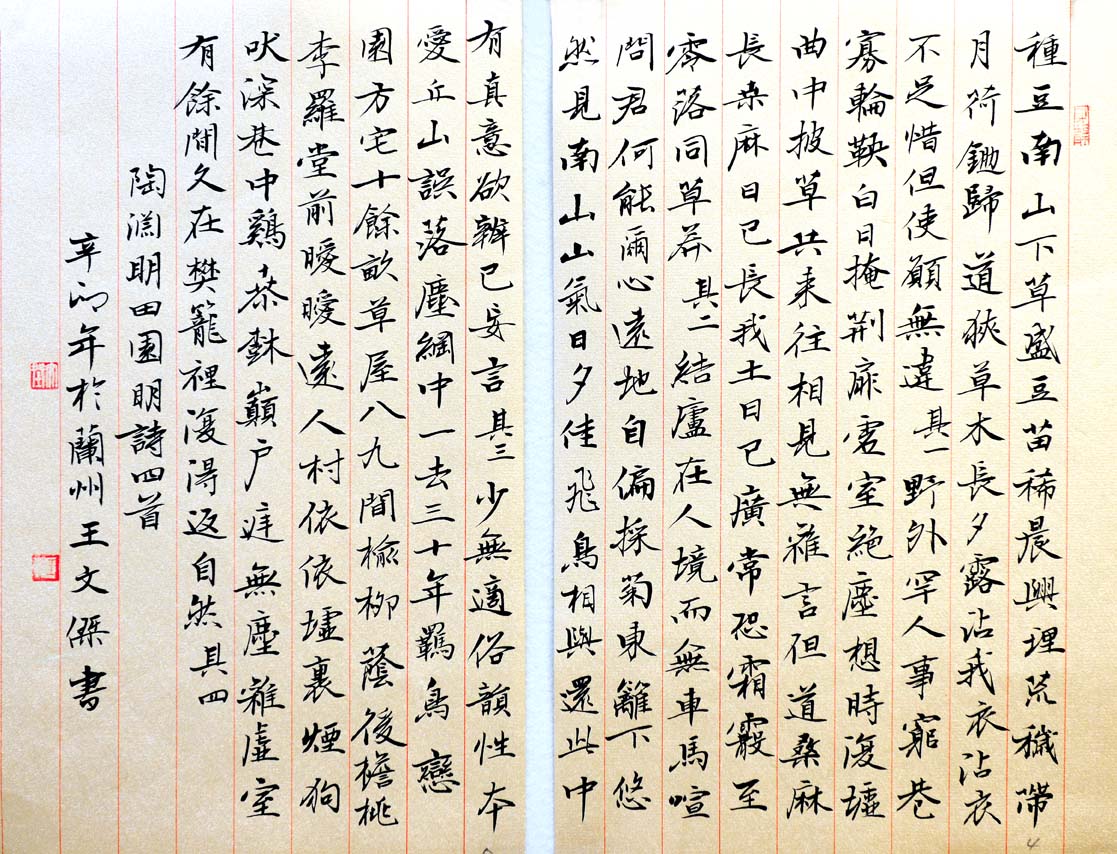 種豆南山下草盛豆苗稀晨興理荒穢帶
月荷鋤歸道狹草木長夕露沾我衣沾衣
不足惜但使願無違其一野外罕人事窮巷
寡輪鞅白日掩荆扉虛室絕塵想時復墟
曲中披草共来往相見無雜言但道桑麻
長桑麻日已長我土日已廣常恐霜霰至
零落同草莽其二結廬在人境而無車馬喧
問君何能爾心遠地自偏採菊東籬下悠
然見南山山氣日夕佳飛鳥相與還此中
有真意欲辨已妄言其三少無適俗韻性本
愛丘山誤落塵網中一去三十年羈鳥戀
園方宅十餘畝草屋八九間榆柳蔭後檐桃
李羅堂前曖曖遠人村依依墟裏煙狗
吠深巷中鷄巔户庭無塵雜虛室
有餘間久在樊籠裡復得返自然其四
陶淵明田園明詩四首
辛卯年於蘭州王文傑書